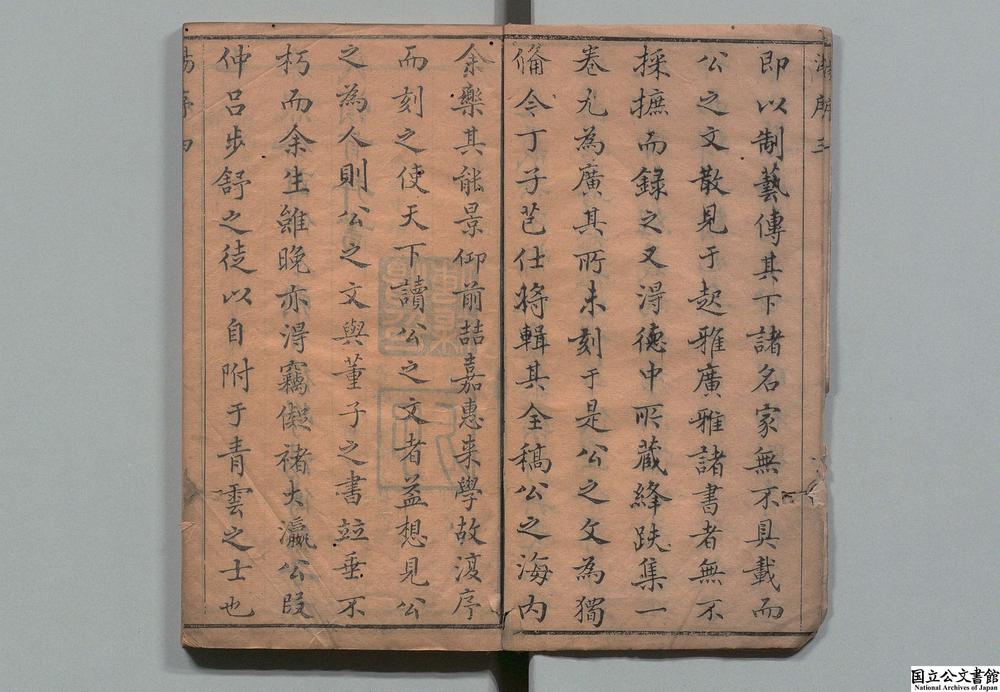 即以制藝傳其下諸名家無不具載而
公之文散見于起雅廣雅諸書者無不
採摭而錄之又得德中所藏絳趺集一
卷尤為廣其所未刻于是公之文為獨
備今丁子芑仕将輯其全稿公之海内
余樂其能景仰前喆嘉惠来學故復序
而刻之使天下讀公之文者益想見公
之為人則公之文與董子之書竝垂不
朽而余生雖晚亦得竊儗褚大瀛公段
仲呂步舒之徒以自附于青雲之士也
国立公文書館
National Archives of Japan